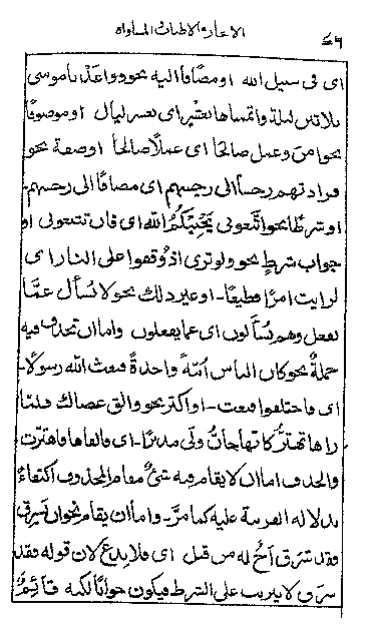 الايجاز و الاطناب و المساواة
اى فى سبيل الله او مضافا اليه نحو و واعدنا موسى
ثلاثين ليلة واتممناها بعشر اى بعشر ليال او موصوفًا
نحو امن وعمل صالحا اى عملًا صالحا او صفة نحو
فزادتهم رجسا الى رجسهم اى مضافا الى رجسهم
او شرطًا نحو اتّبعونى يحببكم الله اى فان تتبعونى او
جواب شرط نحو ولو ترى اذ وقفوا على النار اى
لرايت امرًا فظيعًا - او غير ذلك نحو لا يسأل عمّا
يفعل وهم يسألون اى عما يفعلون واما ان تحذف فيه
جملةٌ نحو كان الناس امّةً واحدةً فبعث الله رسولًا -
اى فاختلفوا فبعث - او اكثر نحو والق عصاك فلمّا
راها تهتزّ كانّها جانّ ولّى مدبرًا - اى فالقاها فاهتزّت
والحذف اما ان لا يقام فيه شئٌ مقام المحذوف اكتفاءً
بدلاله القرينة عليه كما مرّ - واما ان يقام نحو ان يسرق
فقد سرق اخٌ له من قبل اى فلا بدع لان قوله فقد
سرق لا يترتب على الشرط فيكون جوابًا لكنه قائمٌ